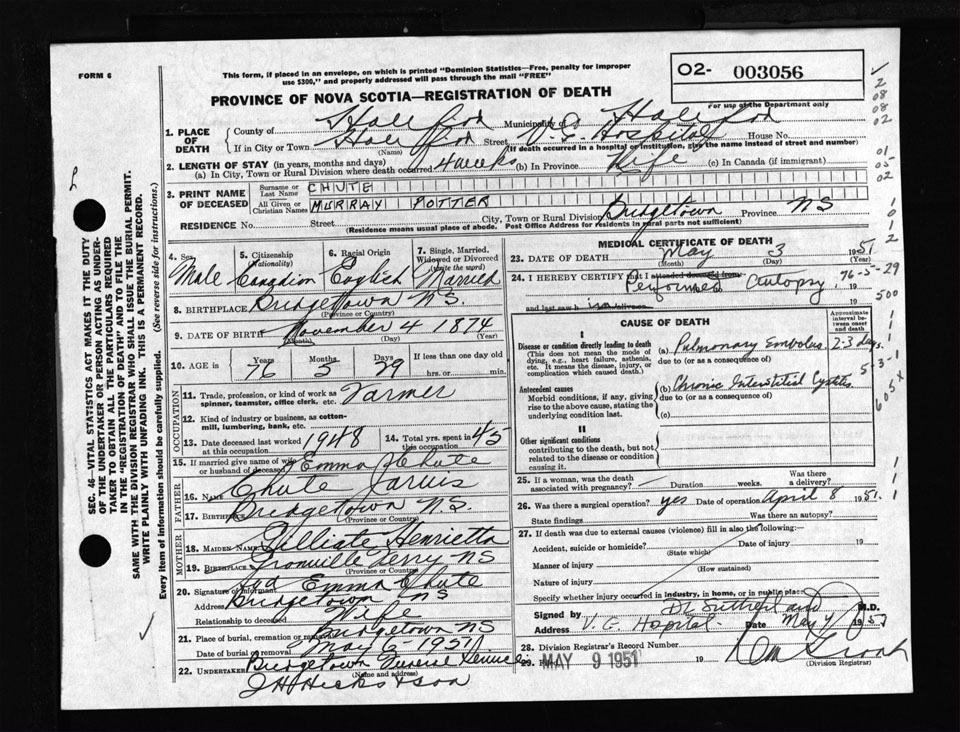 FORM 6
This form, if placed in an envelope, on which is printed "Dominion Statistics—Free, penalty for improper
use $300," and properly addressed will pass through the mail "FREE"
O2- 003056
For use of the Department only
PROVINCE OF NOVA SCOTIA—REGISTRATION OF DEATH
1. PLACE OF DEATH County of Halifax Municipality of Halifax
If in City or Town Halifax Street V.G. Hospital House No.
(Name) (If death occurred in a hospital or institution, give the name instead of street and number)
2. LENGTH OF STAY (in years, months and days)
(a) In City, Town or Rural Division where death occurred 4 weeks (b) In Province Life (c) In Canada (if immigrant)
3. PRINT NAME OF DECEASED Surname or Last Name CHUTE
All Given or Christian Names MURRAY POTTER
RESIDENCE No. Street City, Town or Rural Division Bridgetown Province NS
(Residence means usual place of abode. Post Office Address for residents in rural parts not sufficient)
4. Sex Male
5. Citizenship (Nationality) Canadian
6. Racial Origin English
7. Single, Married, Widowed or Divorced (write the word) Married
8. BIRTHPLACE Bridgetown N.S.
(Province or Country)
9. DATE OF BIRTH November 4 1874
(Month) (Day) (Year)
10. AGE in Years 76 Months 5 Days 29 If less than one day old
hrs. or min.
OCCUPATION
11. Trade, profession, or kind of work as spinner, teamster, office clerk, etc. Farmer
12. Kind of industry or business, as cotton-mill, lumbering, bank, etc.
13. Date deceased last worked at this occupation 1948
14. Total yrs. spent in this occupation 45
15. If married give name of wife or husband of deceased Emma J Chute
FATHER
16. Name Chute Jarvis
17. Birthplace Bridgetown N.S.
(Province or Country)
MOTHER
18. Maiden Name Gilliate Henrietta
19. Birthplace Granville Ferry NS
(Province or Country)
20. Signature of informant Sgd Emma Chute
Address Bridgetown NS
Relationship to deceased Wife
21. Place of burial, cremation or removal Bridgetown NS
Date of burial or removal May 6 1951
22. UNDERTAKER Bridgetown Funeral Service
(Name and address)
J H Hicks & Son
MEDICAL CERTIFICATE OF DEATH
23. DATE OF DEATH May 3 1951
(Month) (Day) (Year)
24. I HEREBY CERTIFY that I attended deceased from
Performed Autopsy. 19
and last saw h im alive on 19
76-5-29
CAUSE OF DEATH
Approximate interval between onset and death
I
Disease or condition directly leading to death
(This does not mean the mode of dying, e.g., heart failure, asthenia, etc. It means the disease, injury, or complication which caused death.)
(a) Pulmonary Embolus 2-3 days.
due to (or as a consequence of)
Antecedent causes
Morbid conditions, if any, giving rise to the above cause, stating the underlying condition last.
(b) Chronic Interstitial Cystitis
due to (or as a consequence of)
(c)
II
Other significant conditions
contributing to the death, but not related to the disease or condition causing it.
25. If a woman, was the death associated with pregnancy? Duration weeks. Was there a delivery?
26. Was there a surgical operation? yes Date of operation April 8 1951
State findings Was there an autopsy?
27. If death was due to external causes (violence) fill in also the following:—
Accident, suicide or homicide? Date of injury 19
(State which)
Manner of injury
(How sustained)
Nature of injury
Specify whether injury occurred in industry, in home, or in public place
Signed by DL Sutherland M.D.
Address V. G. Hospital Date May 4 1951
28. Division Registrar's Record Number
29. MAY 9 1951 19
(Division Registrar)
SEC. 46—VITAL STATISTICS ACT MAKES IT THE DUTY
OF THE UNDERTAKER OR PERSON ACTING AS UNDER-
TAKER TO OBTAIN ALL THE PARTICULARS REQUIRED
IN THE "REGISTRATION OF DEATH" AND TO FILE THE
SAME WITH THE DIVISION REGISTRAR WHO SHALL ISSUE THE BURIAL PERMIT.
WRITE PLAINLY WITH UNFADING INK. THIS IS A PERMANENT RECORD.
Every item of information should be carefully supplied. (See reverse side for instructions.)